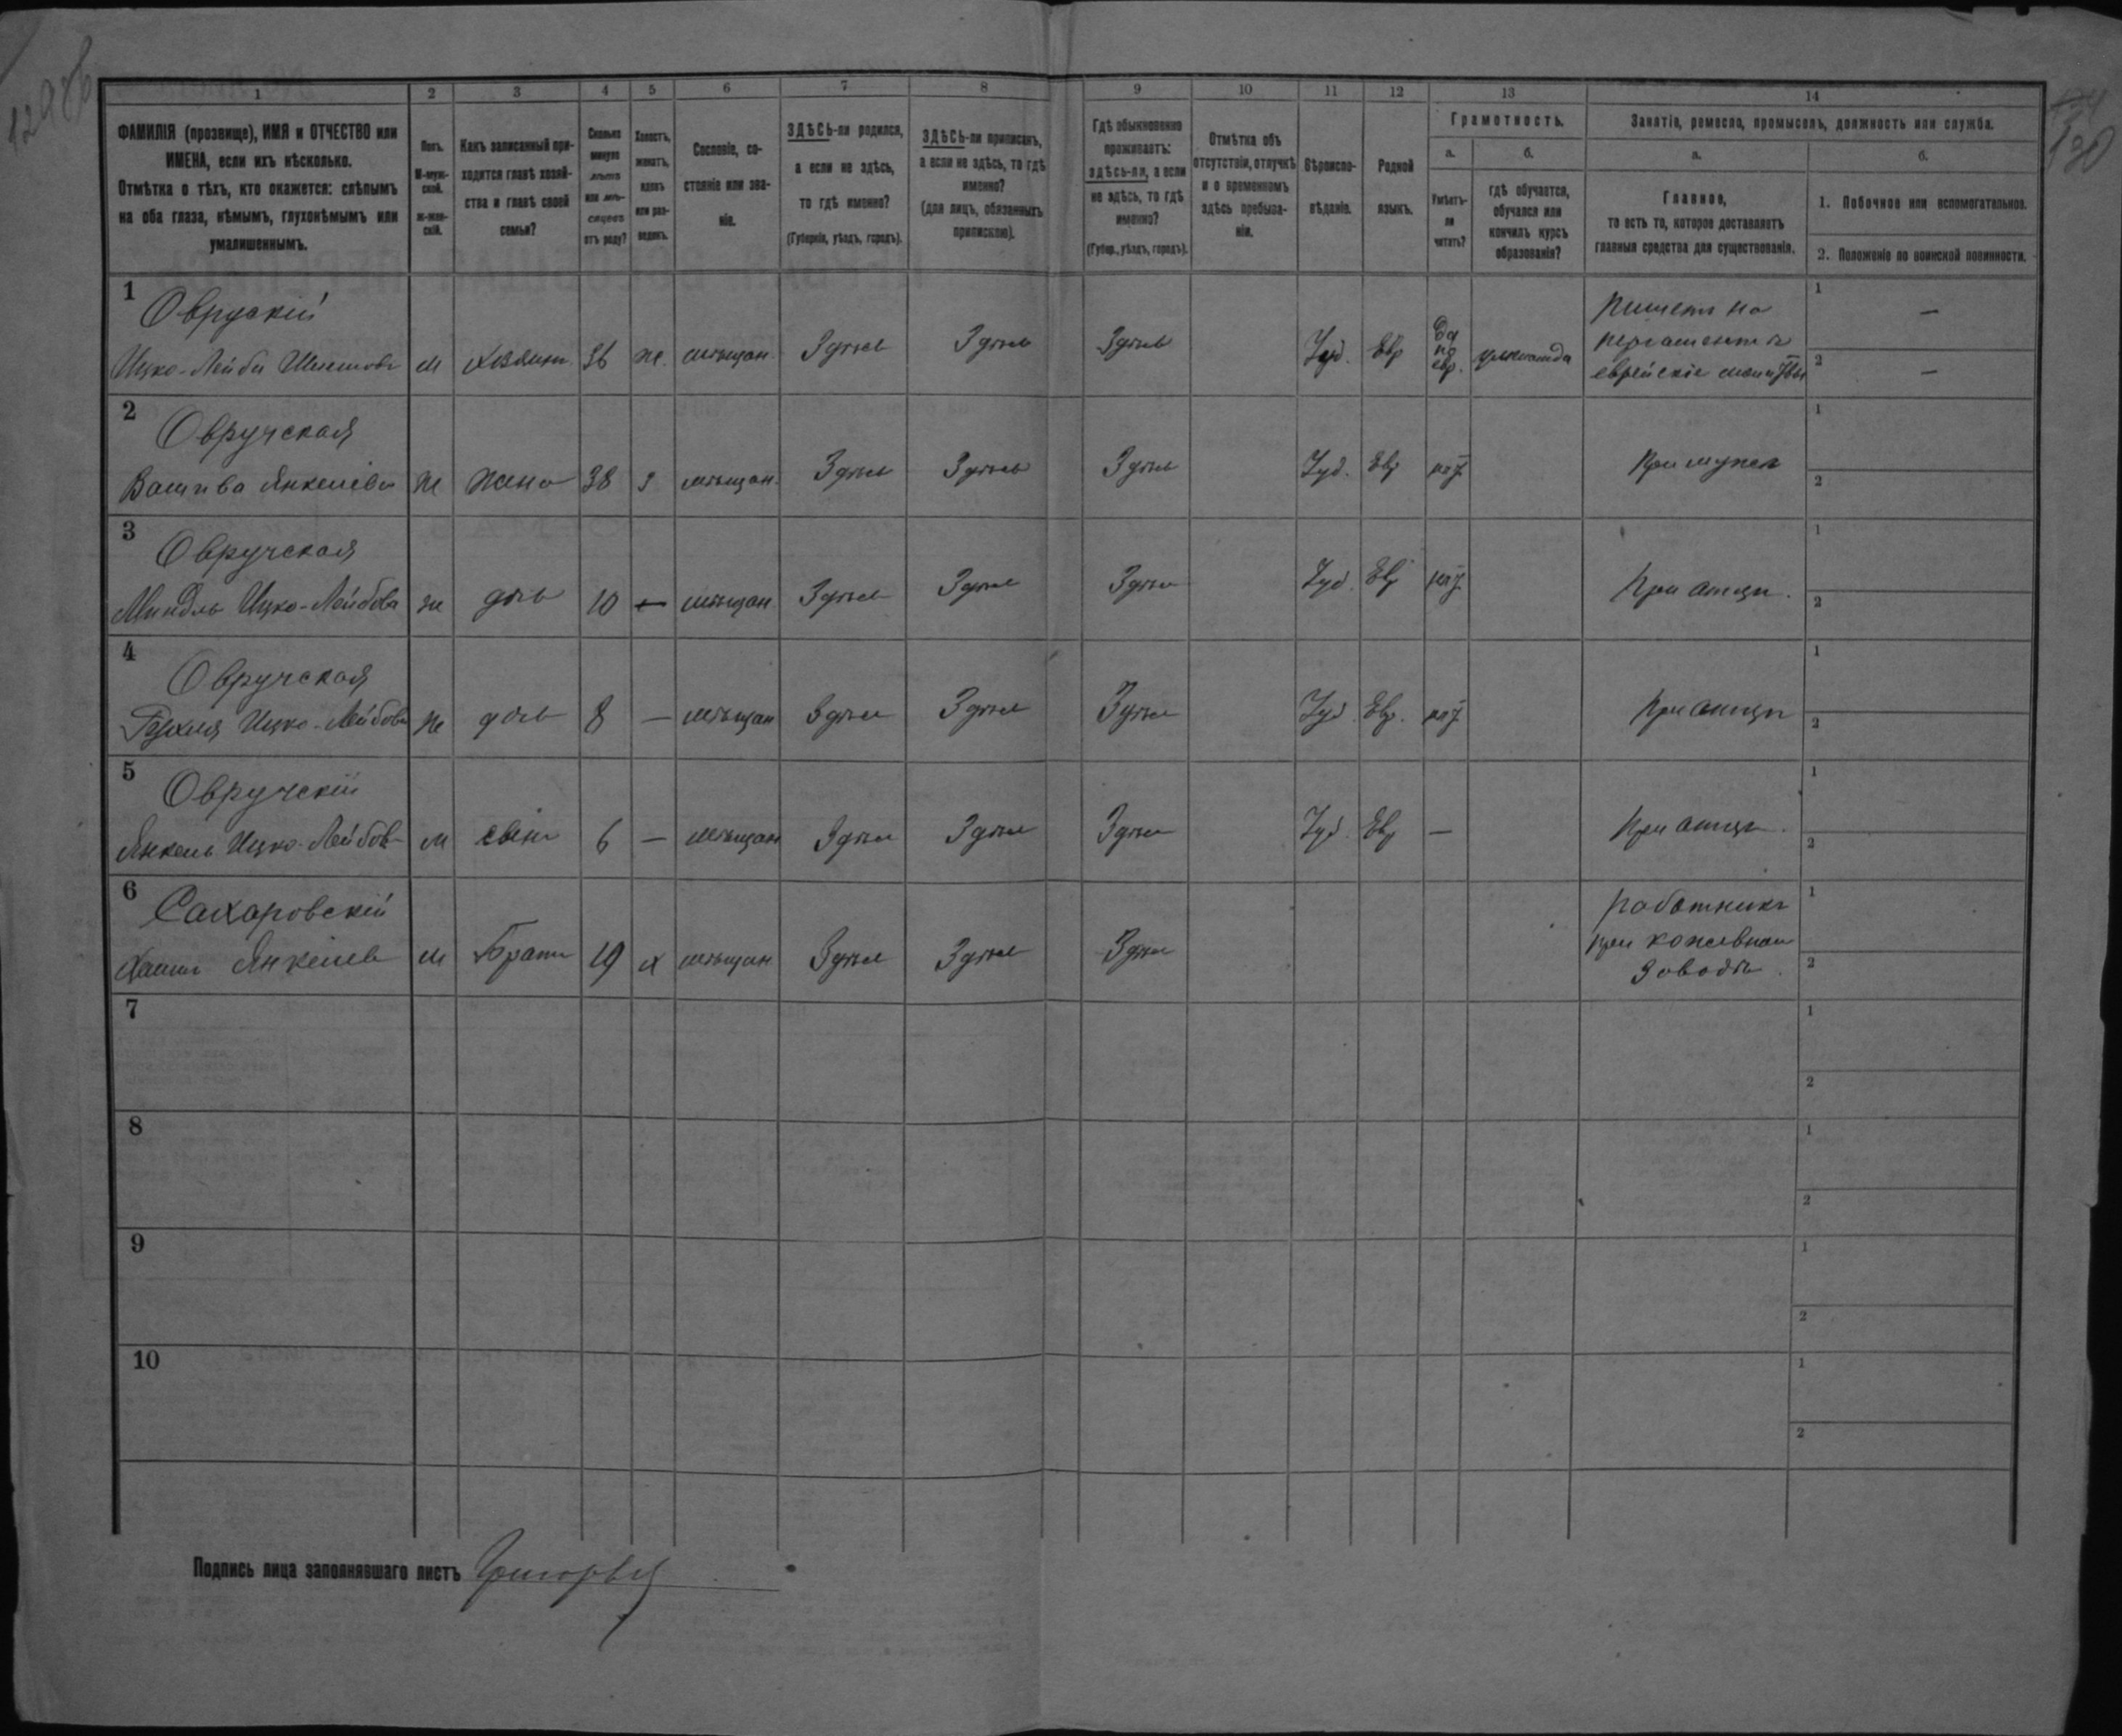 1 2 3 4 5 6 7 8 9 10 11 12 13 14
ФАМИЛІЯ (прозвище), ИМЯ и ОТЧЕСТВО или
ИМЕНА, если ихъ нѣсколько.
Отмѣтка о тѣхъ, кто окажется: слѣпымъ
на оба глаза, нѣмымъ, глухонѣмымъ или
умалишеннымъ.
Полъ.
М-муж-
ской.
ж-жен-
скій.
Какъ записанный при-
ходится главѣ хозяй-
ства и главѣ своей
семьи?
Сколько
минуло
лѣтъ
или мѣ-
сяцевъ
отъ роду?
Холостъ,
женатъ,
вдовъ
или раз-
веденъ.
Сословіе, со-
стояніе или зва-
ніе.
ЗДѢСЬ-ли родился,
а если не здѣсь,
то гдѣ именно?
(Губернія, уѣздъ, городъ).
ЗДѢСЬ-ли приписанъ,
а если не здѣсь, то гдѣ
именно?
(для лицъ, обязанныхъ
припискою).
Гдѣ обыкновенно
проживаетъ:
здѣсь-ли, а если
не здѣсь, то гдѣ
именно?
(Губер., уѣздъ, городъ).
Отмѣтка объ
отсутствіи, отлучкѣ
и о временномъ
здѣсь пребыва-
ніи.
Вѣроиспо-
вѣданіе.
Родной
языкъ.
Грамотность.
а.
Умѣетъ-
ли
читать?
б.
гдѣ обучается,
обучался или
кончилъ курсъ
образованія?
Занятіе, ремесло, промыселъ, должность или служба.
а.
Главное,
то есть то, которое доставляетъ
главныя средства для существованія.
б.
1. Побочное или вспомогательное.
2. Положеніе по воинской повинности.
1
Овруцкій
Ицко-Лейба м хозяин 36 ж. мѣщан. Здѣсь Здѣсь Здѣсь Іуд. Евр да по евр.
пишетъ на
пергаментѣ
еврейскіе
1 —
2 —
2
Овручская
Янкелева ж жена 38 з мѣщан. Здѣсь Здѣсь Здѣсь Іуд. Евр нѣт При мужѣ
1
2
3
Овручская
Миндль Ицко-Лейбова ж дочь 10 — мѣщан Здѣсь Здѣсь Здѣсь Іуд. Евр нѣт При отцѣ.
1
2
4
Овручская
Рухля Ицко-Лейбова ж дочь 8 — мѣщан Здѣсь Здѣсь Здѣсь Іуд. Евр. нѣт При отцѣ
1
2
5
Овручскій
Янкель Ицко-Лейбов м сын 6 — мѣщан Здѣсь Здѣсь Здѣсь Іуд. Евр — При отцѣ.
1
2
6
Сахаровскій
Хаим Янкелев м Брат 19 х мѣщан Здѣсь Здѣсь Здѣсь
работникъ
при кожевном
заводѣ.
1
2
7
1
2
8
1
2
9
1
2
10
1
2
Подпись лица заполнявшаго листъ